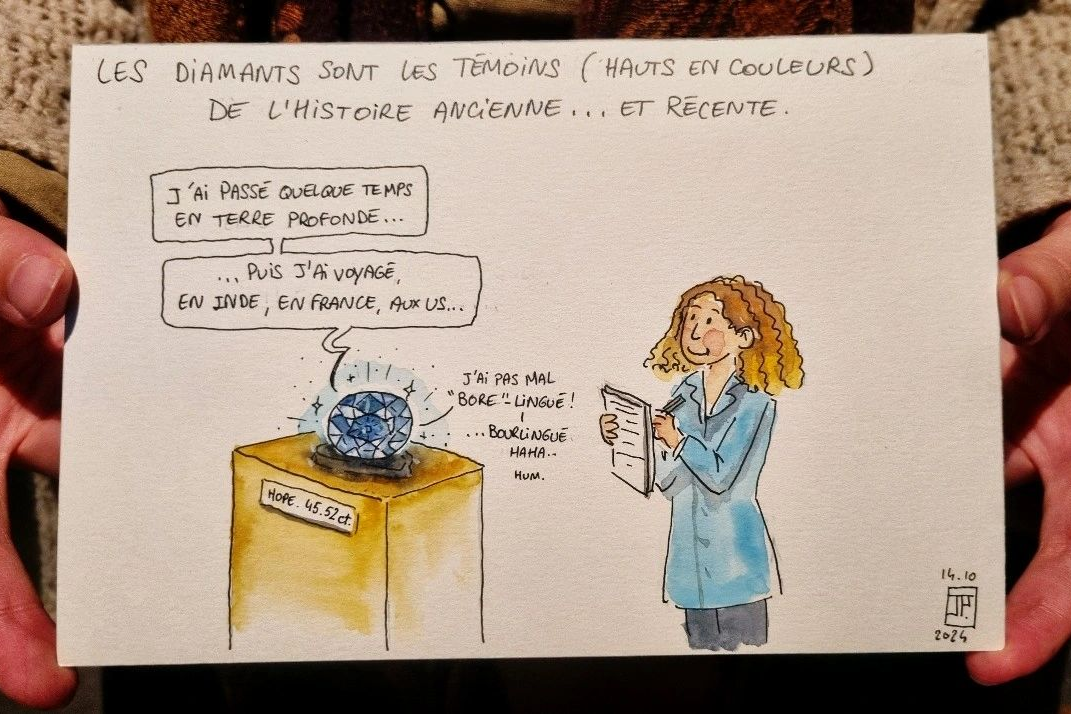 LES DIAMANTS SONT LES TÉMOINS (HAUTS EN COULEURS)
DE L'HISTOIRE ANCIENNE... ET RÉCENTE.
J'AI PASSÉ QUELQUE TEMPS
EN TERRE PROFONDE...
... PUIS J'AI VOYAGÉ,
EN INDE, EN FRANCE, AUX US...
J'AI PAS MAL
"BORE"-LINGUÉ!
...BOURLINGUÉ.
HAHA..
HUM.
HOPE. 45.52ct.
14.10
JP.
2024